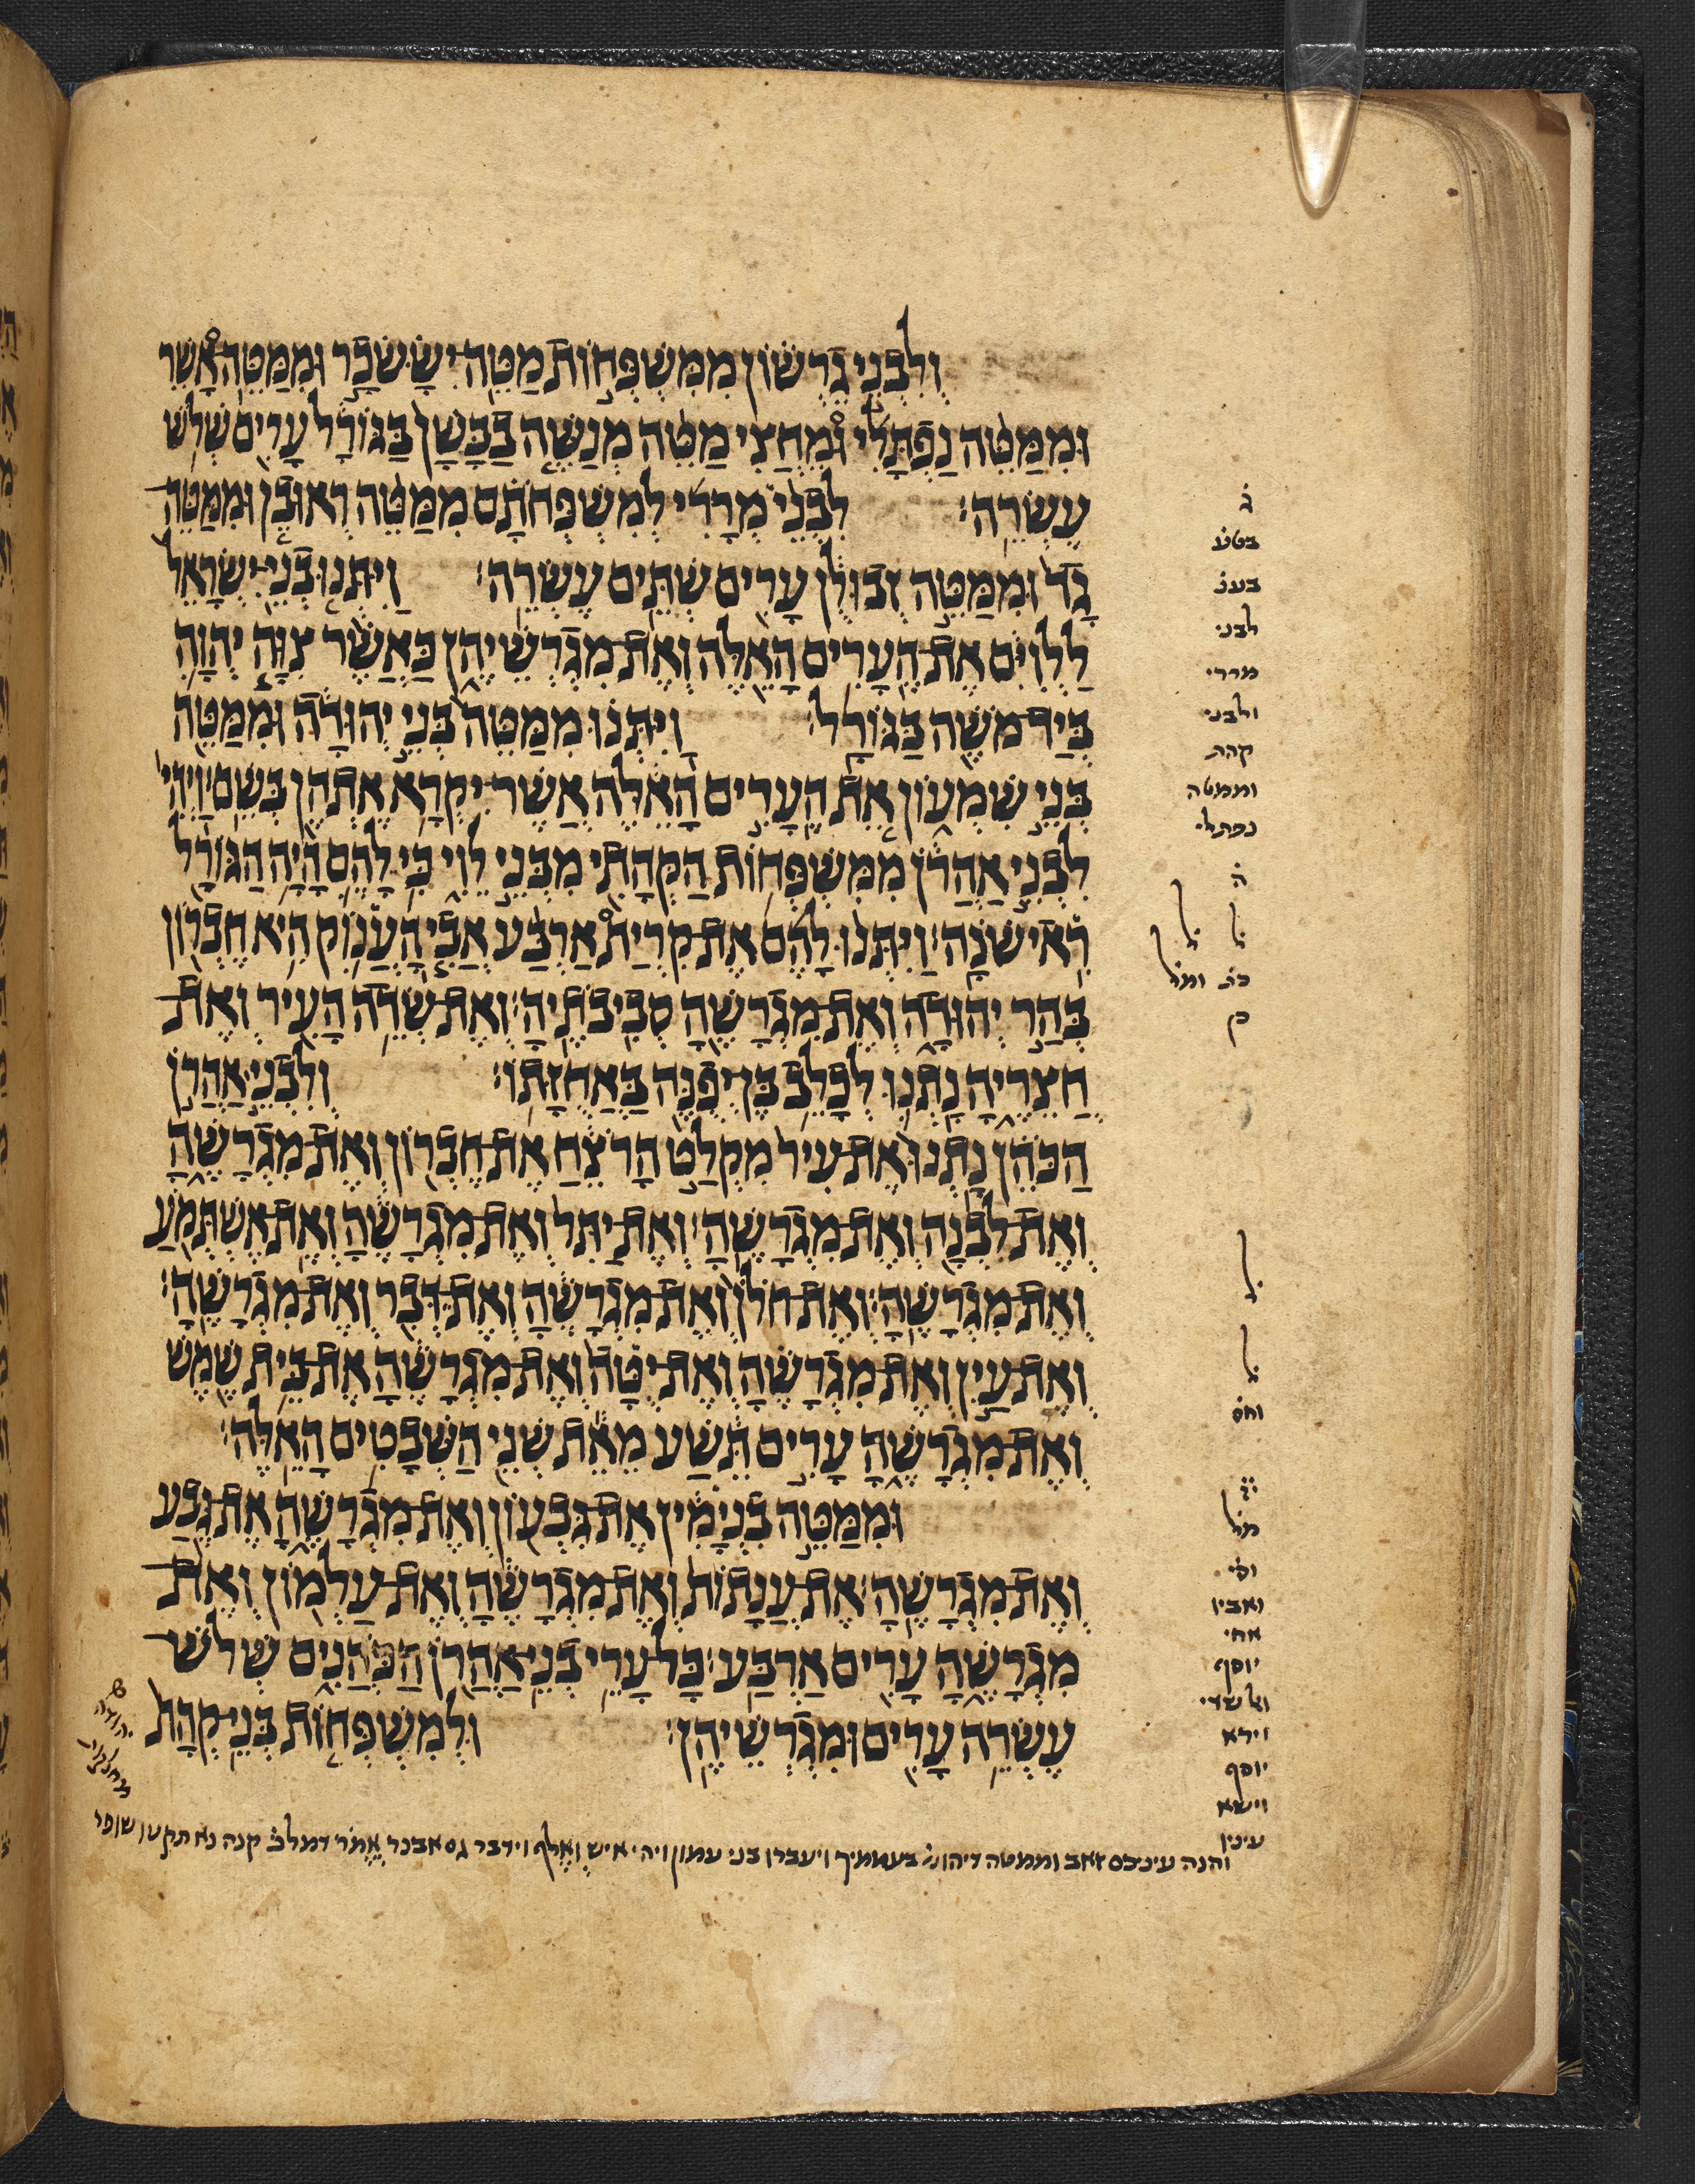 וְלִבְנֵי גֵרְשׁוֹן מִמִּשְׁפְּחוֹת מַטֵּה יִשָּׂשכָר וּמִמַּטֵּה אָשֵׁר
וּמִמַּטֵּה נַפְתָּלִי וּמֵחֲצִי מַטֵּה מְנַשֶּׁה בַבָּשָׁן בַּגּוֹרָל עָרִים שְׁלֹשׁ
עֶשְׂרֵה׃ לִבְנֵי מְרָרִי לְמִשְׁפְּחֹתָם מִמַּטֵּה רְאוּבֵן וּמִמַּטֵּה
גָד וּמִמַּטֵּה זְבוּלֻן עָרִים שְׁתֵּים עֶשְׂרֵה׃ וַיִּתְּנוּ בְנֵי־יִשְׂרָאֵל
לַלְוִיִּם אֶת־הֶעָרִים הָאֵלֶּה וְאֶת־מִגְרְשֵׁיהֶן כַּאֲשֶׁר צִוָּה יְהוָה
בְּיַד־מֹשֶׁה בַּגּוֹרָל׃ וַיִּתְּנוּ מִמַּטֵּה בְּנֵי יְהוּדָה וּמִמַּטֵּה
בְּנֵי שִׁמְעוֹן אֵת הֶעָרִים הָאֵלֶּה אֲשֶׁר־יִקְרָא אֶתְהֶן בְּשֵׁם׃ וַיְהִי
לִבְנֵי אַהֲרֹן מִמִּשְׁפְּחוֹת הַקְּהָתִי מִבְּנֵי לֵוִי כִּי לָהֶם הָיָה הַגּוֹרָל
רִאישֹׁנָה׃ וַיִּתְּנוּ לָהֶם אֶת־קִרְיַת אַרְבַּע אֲבִי הָעֲנוֹק הִיא חֶבְרוֹן
בְּהַר יְהוּדָה וְאֶת־מִגְרָשֶׁהָ סְבִיבֹתֶיהָ׃ וְאֶת־שְׂדֵה הָעִיר וְאֶת־
חֲצֵרֶיהָ נָתְנוּ לְכָלֵב בֶּן־יְפֻנֶּה בַּאֲחֻזָּתוֹ׃ וְלִבְנֵי אַהֲרֹן
הַכֹּהֵן נָתְנוּ אֶת־עִיר מִקְלַט הָרֹצֵחַ אֶת־חֶבְרוֹן וְאֶת־מִגְרָשֶׁהָ
וְאֶת־לִבְנָה וְאֶת־מִגְרָשֶׁהָ׃ וְאֶת־יַתִּר וְאֶת־מִגְרָשֶׁהָ וְאֶת־אֶשְׁתְּמֹעַ
וְאֶת־מִגְרָשֶׁהָ׃ וְאֶת־חֹלֹן וְאֶת־מִגְרָשֶׁהָ וְאֶת־דְּבִר וְאֶת־מִגְרָשֶׁהָ׃
וְאֶת־עַיִן וְאֶת־מִגְרָשֶׁהָ וְאֶת־יֻטָּה וְאֶת־מִגְרָשֶׁהָ אֶת־בֵּית שֶׁמֶשׁ
וְאֶת־מִגְרָשֶׁהָ עָרִים תֵּשַׁע מֵאֵת שְׁנֵי הַשְּׁבָטִים הָאֵלֶּה׃
וּמִמַּטֵּה בִנְיָמִין אֶת־גִּבְעוֹן וְאֶת־מִגְרָשֶׁהָ אֶת־גֶּבַע
וְאֶת־מִגְרָשֶׁהָ׃ אֶת־עֲנָתוֹת וְאֶת־מִגְרָשֶׁהָ וְאֶת־עַלְמוֹן וְאֶת־
מִגְרָשֶׁהָ עָרִים אַרְבַּע׃ כָּל־עָרֵי בְנֵי־אַהֲרֹן הַכֹּהֲנִים שְׁלֹשׁ־
עֶשְׂרֵה עָרִים וּמִגְרְשֵׁיהֶן׃ וּלְמִשְׁפְּחוֹת בְּנֵי־קְהָת
ג
לבני
מררי
ולבני
קהת
וממטה
נפתלי
ה
ל
ל
ואבין
אחי
יוסף
וירא
יוסף
וישא
עינין
והנה וממטה ויעברו בני עמון ויהי איש ואלף וידבר גם אבנר קנה נא תקעו שופר